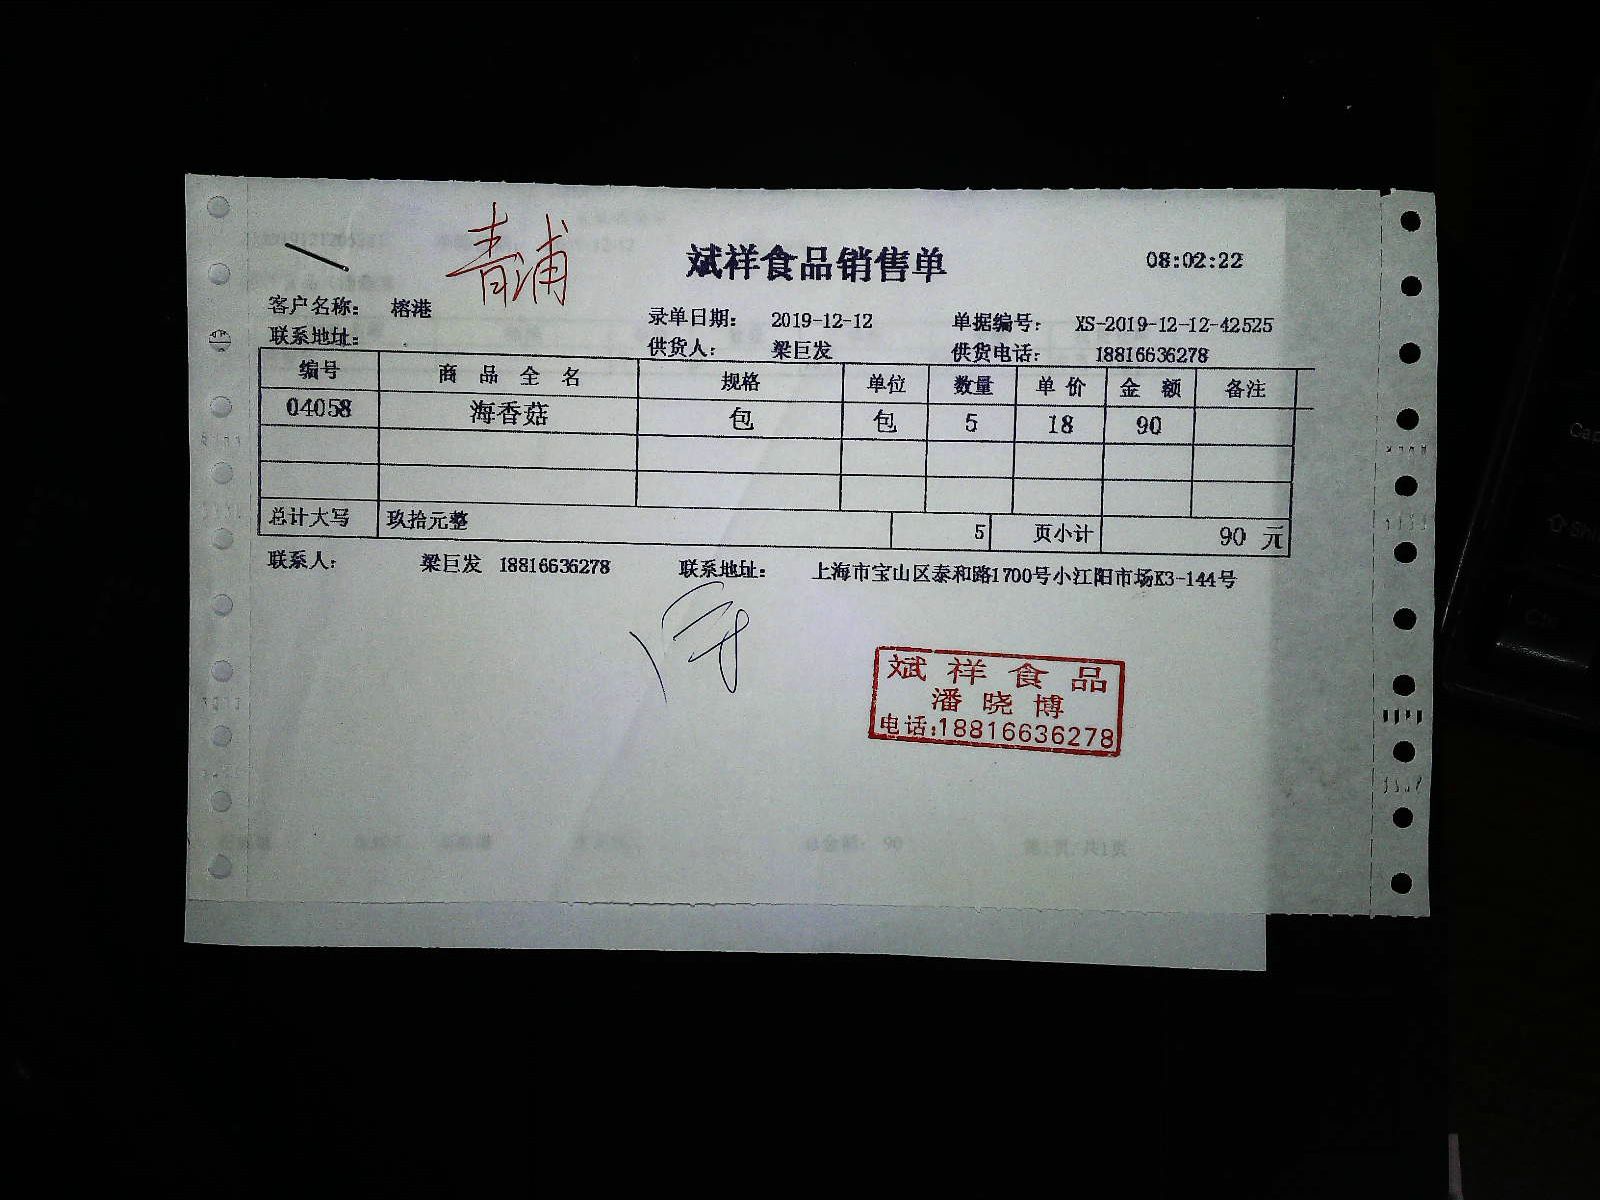 青浦
斌祥食品销售单 08:02:22
客户名称： 榕港
录单日期： 2019-12-12 单据编号： XS-2019-12-12-42525
联系地址：
供货人： 梁巨发 供货电话： 18816636278
编号 商 品 全 名 规格 单位 数量 单 价 金 额 备注
04058 海香菇 包 包 5 18 90
总计大写 玖拾元整 5 页小计 90 元
联系人： 梁巨发 18816636278 联系地址： 上海市宝山区泰和路1700号小江阳市场K3-144号
斌祥食品
潘晓博
电话:18816636278
总金额： 90 共1页